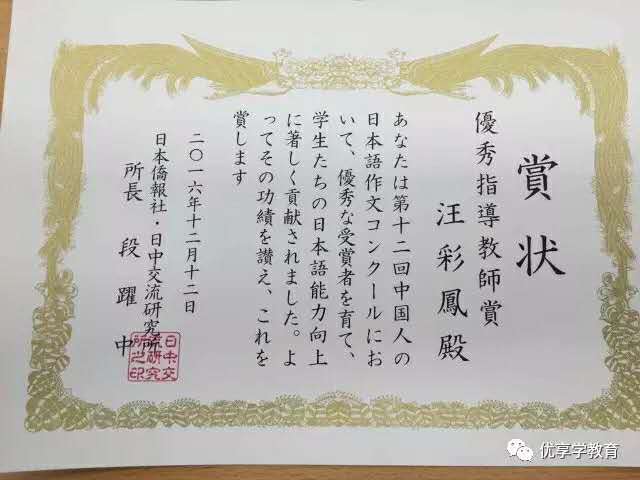 賞状
優秀指導教師賞
汪彩鳳殿
あなたは第十二回中国人の
日本語作文コンクールにお
いて、優秀な受賞者を育て、
学生たちの日本語能力向上
に著しく貢献されました。よ
ってその功績を讃え、これを
賞します
二〇一六年十二月十二日
日本僑報社・日中交流研究所
所長 段躍中
日中交
流研究
所之印
优享学教育